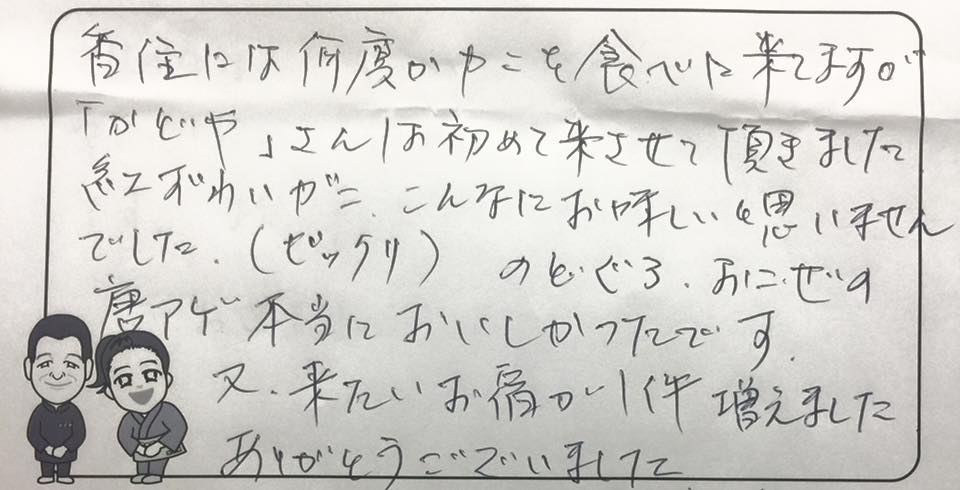 香住には何度かやこを食べに来てますが
「かどや」さんは初めて来させて頂きました
紅ずわいがニ、こんなにお味しいと思いません
でした。(ビックリ) のどぐろ、おにぜの
唐アゲ本当においしかったです。
又、来たいお宿が1件 増えました
ありがとうございました